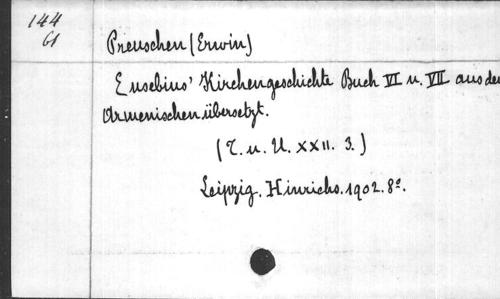 144
61
Preuschen (Erwin)
Eusebius' Kirchengeschichte Buch VI u. VII aus dem
Armenischen übersetzt.
(T. u. U. XXII. 3.)
Leipzig. Hinrichs. 1902. 8º.